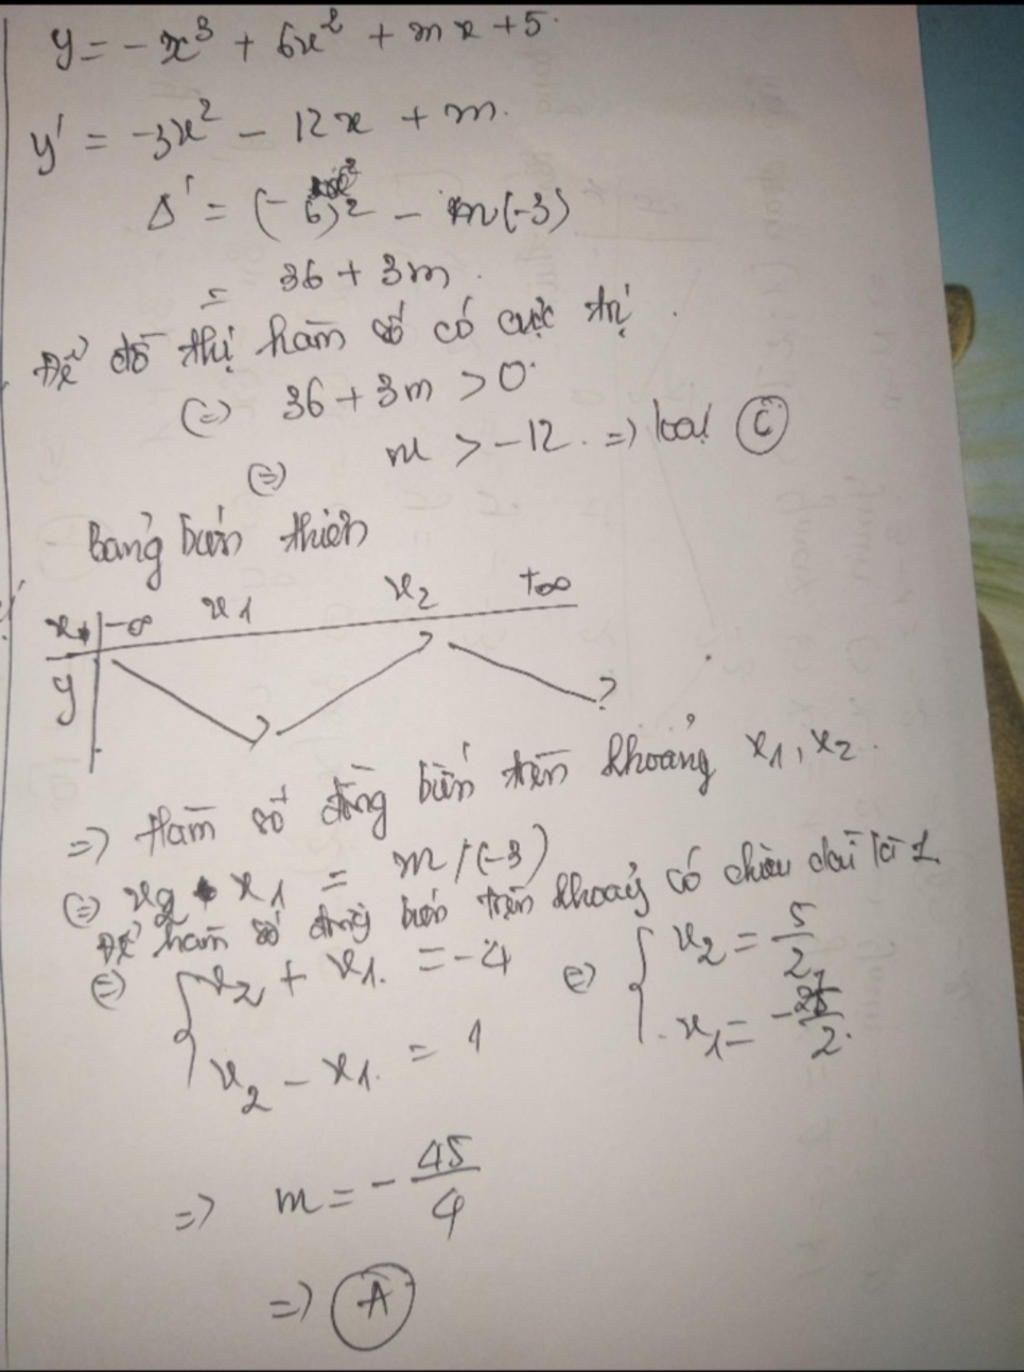 y = -x³ + 6x² + mx + 5.
y' = -3x² - 12x + m.
Δ' = (-6)² - m(-3)
= 36 + 3m.
Để đồ thị hàm số có cực trị.
(=) 36 + 3m > 0.
(=) m > -12. => loại C
Bảng biến thiên
x -∞ x1 x2 +∞
y
=> Hàm số đồng biến trên khoảng x1, x2.
(=) x2 . x1 = m/(-3)
Để hàm số đồng biến trên khoảng có chiều dài là 1
(=) { x2 + x1 = -4 (=) { x2 = 5/2
x2 - x1 = 1 x1 = - /2
=> m = -45/4
=> A